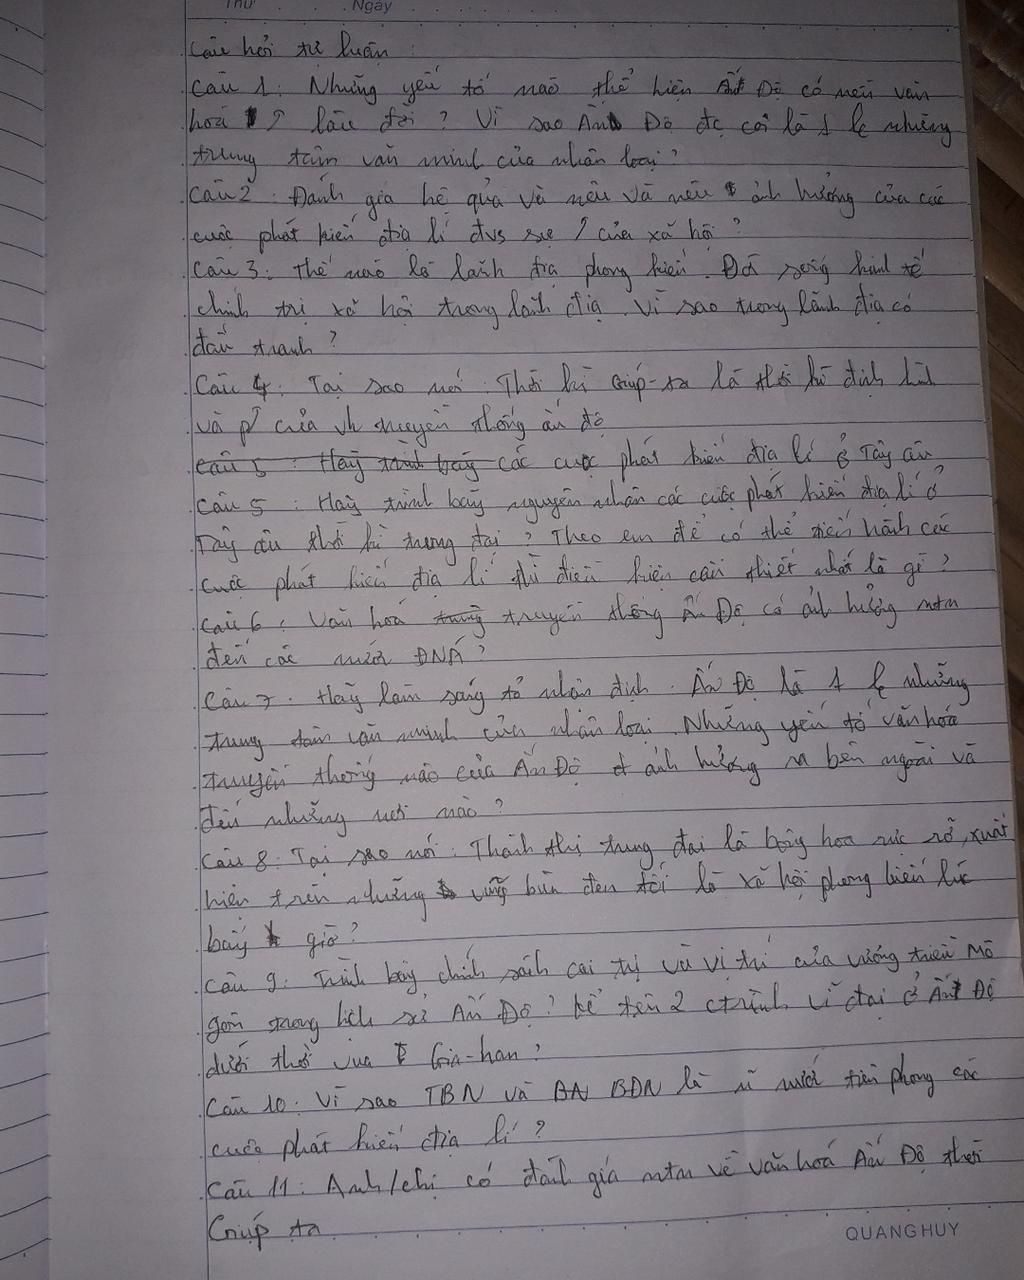 Thứ Ngày
Câu hỏi tự luận :
Câu 1 : Những yếu tố nào thể hiện Ấn Độ có nền văn
hoá lâu đời ? Vì sao Ấn Độ đc coi là 1 những
trung tâm văn minh của nhân loại ?
Câu 2 : Đánh giá hệ quả và nêu và nêu ảnh hưởng của các
cuộc phát kiến địa lí đvs sự của xã hội ?
Câu 3 : Thế nào là lãnh địa phong kiến . Đời sống kinh tế
chính trị xã hội trong lãnh địa . Vì sao trong lãnh địa có
đấu tranh ?
Câu 4 : Tại sao nói : Thời kì Gúp-ta là thời kì định hình
và của vh truyền thống ấn độ
Câu 5 : Hãy trình bày các cuộc phát kiến địa lí ở Tây âu
Câu 5 : Hãy trình bày nguyên nhân các cuộc phát kiến địa lí ở
Tây âu thời kì trung đại ? Theo em để có thể tiến hành các
cuộc phát kiến địa lí thì điều kiện cần thiết nhất là gì ?
Câu 6 : Văn hoá truyền thống Ấn Độ có ảnh hưởng ntn
đến các nước ĐNÁ ?
Câu 7 . Hãy làm sáng tỏ nhận định : Ấn Độ là 1 những
trung tâm văn minh của nhân loại . Những yếu tố văn hóa
truyền thống nào của Ấn Độ ảnh hưởng ra bên ngoài và
đến những nơi nào ?
Câu 8 : Tại sao nói : Thành thị trung đại là bông hoa rực rỡ, xuất
hiện trên những vũng bùn đen tối là xã hội phong kiến lúc
bấy giờ ?
Câu 9 : Trình bày chính sách cai trị và vị trí của vương triều Mô
gôn trong lịch sử Ấn Độ ? kể tên 2 ctrình vĩ đại ở Ấn Độ
dưới thời vua Gia-han ?
Câu 10 : Vì sao TBN và BĐN là nước tiên phong các
cuộc phát kiến địa lí ?
Câu 11 : Anh/chị có đánh giá ntn về văn hoá Ấn Độ thời
Gúp ta
QUANG HUY